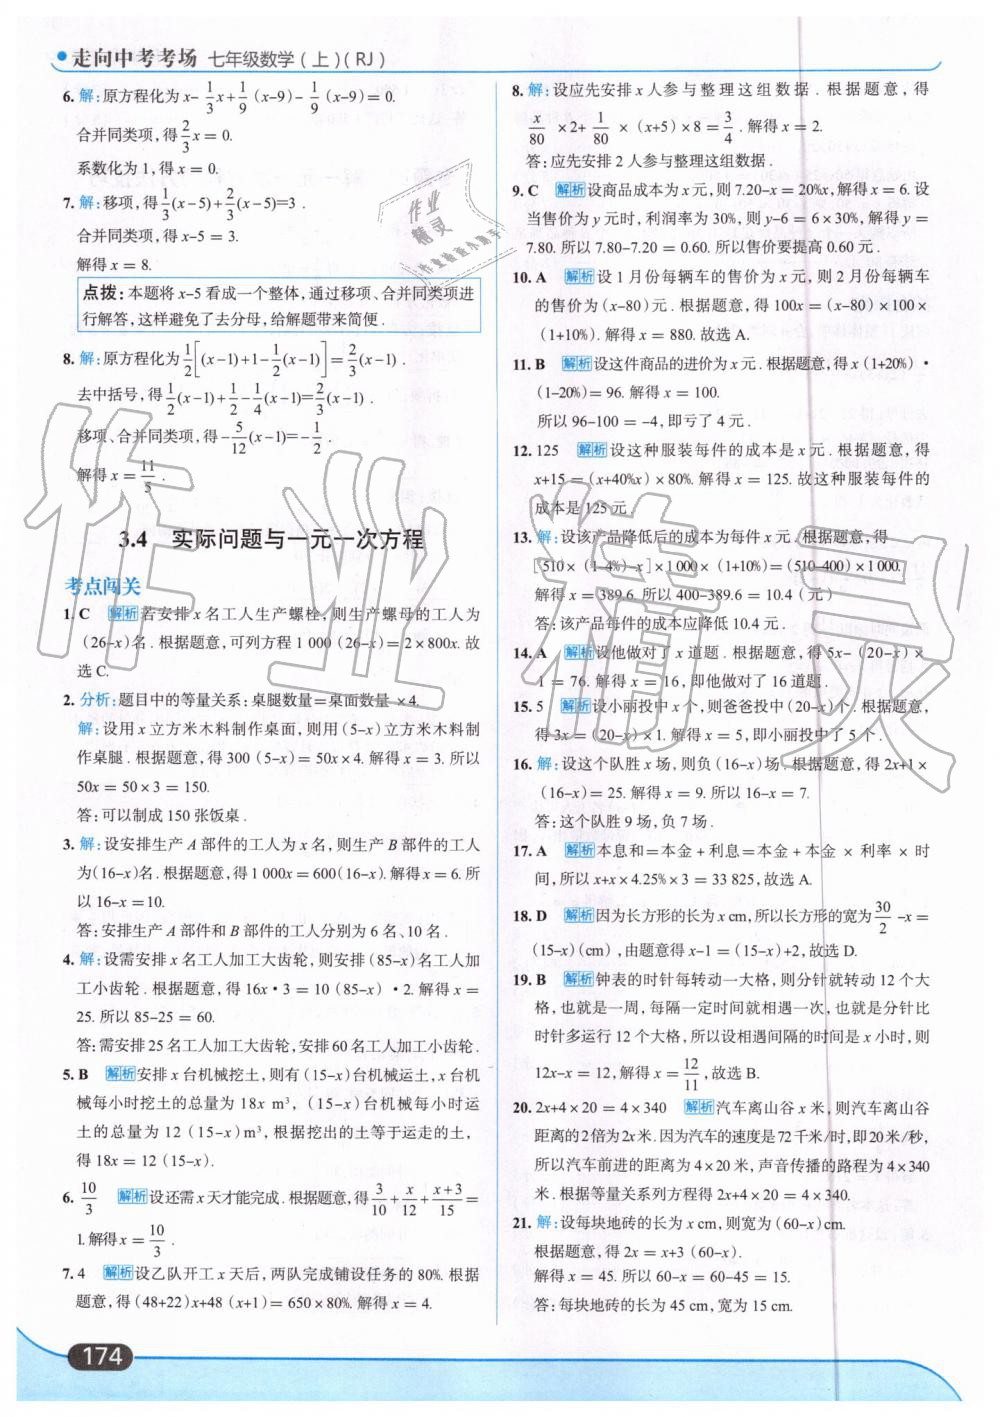 走向中考考场 七年级数学(上)(RJ)
6. 解:原方程化为x-1/3x+1/9(x-9)-1/9(x-9)=0.
合并同类项,得2/3x=0.
系数化为1,得x=0.
7. 解:移项,得1/3(x-5)+2/3(x-5)=3.
合并同类项,得x-5=3.
解得x=8.
点拨:本题将x-5看成一个整体,通过移项、合并同类项进
行解答,这样避免了去分母,给解题带来简便.
8. 解:原方程化为1/2[(x-1)+1-1/2(x-1)]=2/3(x-1).
去中括号,得1/2(x-1)+1/2-1/4(x-1)=2/3(x-1).
移项、合并同类项,得-5/12(x-1)=-1/2.
解得x=11/5.
3.4 实际问题与一元一次方程
考点闯关
1. C 解析 若安排x名工人生产螺栓,则生产螺母的工人为
(26-x)名.根据题意,可列方程1 000(26-x)=2×800x.故
选C.
2. 分析:题目中的等量关系:桌腿数量=桌面数量×4.
解:设用x立方米木料制作桌面,则用(5-x)立方米木料制
作桌腿.根据题意,得300(5-x)=50x×4.解得x=3.所以
50x=50×3=150.
答:可以制成150张饭桌.
3. 解:设安排生产A部件的工人为x名,则生产B部件的工人
为(16-x)名.根据题意,得1 000x=600(16-x).解得x=6.所
以16-x=10.
答:安排生产A部件和B部件的工人分别为6名、10名.
4. 解:设需安排x名工人加工大齿轮,则安排(85-x)名工人加
工小齿轮.根据题意,得16x·3=10(85-x)·2.解得x=
25.所以85-25=60.
答:需安排25名工人加工大齿轮,安排60名工人加工小齿轮.
5. B 解析 安排x台机械挖土,则有(15-x)台机械运土,x台机
械每小时挖土的总量为18x m³,(15-x)台机械每小时运
土的总量为12(15-x)m³,根据挖出的土等于运走的土,
得18x=12(15-x).
6. 10/3 解析 设还需x天才能完成.根据题意,得3/10+x/12+(x+3)/15=
1.解得x=10/3.
7. 4 解析 设乙队开工x天后,两队完成铺设任务的80%.根据
题意,得(48+22)x+48(x+1)=650×80%.解得x=4.
174
8. 解:设应先安排x人参与整理这组数据.根据题意,得
x/80×2+1/80×(x+5)×8=3/4.解得x=2.
答:应先安排2人参与整理这组数据.
9. C 解析 设商品成本为x元,则7.20-x=20%x,解得x=6.设
当售价为y元时,利润率为30%,则y-6=6×30%,解得y=
7.80.所以7.80-7.20=0.60.所以售价要提高0.60元.
10. A 解析 设1月份每辆车的售价为x元,则2月份每辆车
的售价为(x-80)元.根据题意,得100x=(x-80)×100×
(1+10%).解得x=880.故选A.
11. B 解析 设这件商品的进价为x元.根据题意,得x(1+20%)·
(1-20%)=96.解得x=100.
所以96-100=-4,即亏了4元.
12. 125 解析 设这种服装每件的成本是x元.根据题意,得
x+15=(x+40%x)×80%.解得x=125.故这种服装每件的
成本是125元.
13. 解:设该产品降低后的成本为每件x元.根据题意,得
[510×(1-4%)-x]×1 000×(1+10%)=(510-400)×1 000.
解得x=389.6.所以400-389.6=10.4(元)
答:该产品每件的成本应降低10.4元.
14. A 解析 设他做对了x道题.根据题意,得5x-(20-x)×
1=76.解得x=16,即他做对了16道题.
15. 5 解析 设小丽投中x个,则爸爸投中(20-x)个.根据题意,
得3x=(20-x)×1.解得x=5,即小丽投中了5个.
16. 解:设这个队胜x场,则负(16-x)场.根据题意,得2x+1×
(16-x)=25.解得x=9.所以16-x=7.
答:这个队胜9场,负7场.
17. A 解析 本息和=本金+利息=本金+本金×利率×时
间,所以x+x×4.25%×3=33 825,故选A.
18. D 解析 因为长方形的长为x cm,所以长方形的宽为30/2-x=
(15-x)(cm),由题意得x-1=(15-x)+2,故选D.
19. B 解析 钟表的时针每转动一大格,则分针就转动12个大
格,也就是一周,每隔一定时间就相遇一次,也就是分针比
时针多运行12个大格,所以设相遇间隔的时间是x小时,则
12x-x=12,解得x=12/11,故选B.
20. 2x+4×20=4×340 解析 汽车离山谷x米,则汽车离山谷
距离的2倍为2x米.因为汽车的速度是72千米/时,即20米/秒,
所以汽车前进的距离为4×20米,声音传播的路程为4×340
米.根据等量关系列方程得2x+4×20=4×340.
21. 解:设每块地砖的长为x cm,则宽为(60-x)cm.
根据题意,得2x=x+3(60-x).
解得x=45.所以60-x=60-45=15.
答:每块地砖的长为45 cm,宽为15 cm.
作业精灵